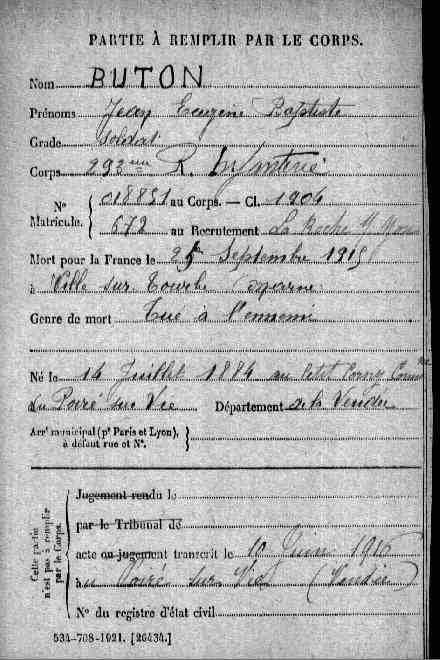 PARTIE À REMPLIR PAR LE CORPS.
Nom BUTON
Prénoms Jean Eugène Baptiste
Grade Soldat
Corps 293ème R. Infanterie
N° Matricule. { 018851 au Corps. — Cl. 1904
672 au Recrutement La Roche s/ Yon
Mort pour la France le 25 Septembre 1915
à Ville sur Tourbe Marne
Genre de mort Tué à l'ennemi
Né le 14 Juillet 1884 au Petit
du Poiré sur Vie Département de la Vendée
Arr' municipal (p' Paris et Lyon), à défaut rue et N°. }
Cette partie n'est pas à remplir par le Corps.
Jugement rendu le
par le Tribunal de
acte ou jugement transcrit le 10 Juin 1916
au Poiré sur Vie (Vendée)
N° du registre d'état civil
534-708-1921. [26434.]